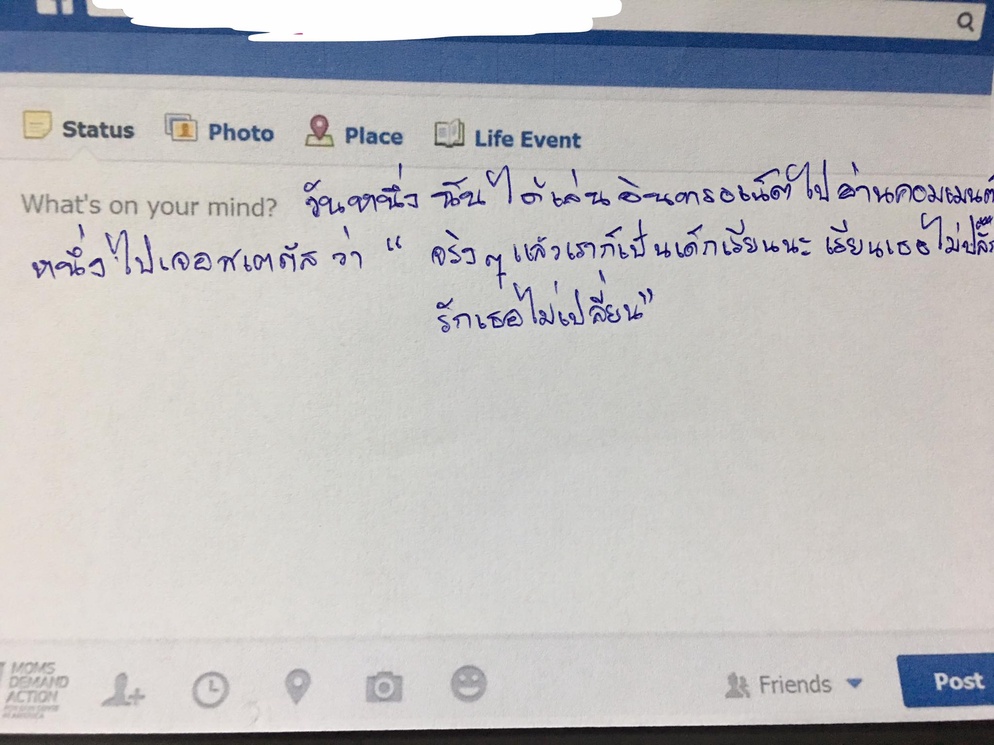 Status Photo Place Life Event
What's on your mind? วันหนึ่ง ฉันได้เล่นอินเทอร์เน็ตไปอ่านคอมเมนต์
หนึ่งไปเจอสเตตัสว่า " จริงๆแล้วเราก็เป็นเด็กเรียนนะ เรียนเธอไม่
รักเธอไม่เปลี่ยน"
MOMS
DEMAND
ACTION
Friends Post